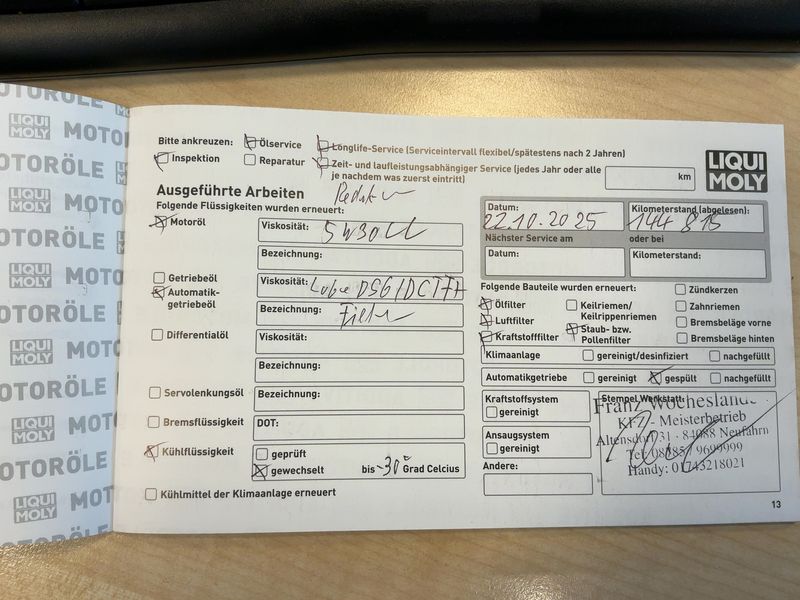 MOTORÖLE
LIQUI MOLY MOTORÖLE
Bitte ankreuzen: Ölservice Longlife-Service (Serviceintervall flexibel/spätestens nach 2 Jahren)
Inspektion Reparatur Zeit- und laufleistungsabhängiger Service (jedes Jahr oder alle km
je nachdem was zuerst eintritt)
LIQUI
MOLY
Ausgeführte Arbeiten
Folgende Flüssigkeiten wurden erneuert:
Motoröl Viskosität: 5W30LL
Bezeichnung:
Getriebeöl
Automatik-
getriebeöl
Viskosität: DSG/DCT
Bezeichnung:
Differentialöl Viskosität:
Bezeichnung:
Servolenkungsöl Bezeichnung:
Bremsflüssigkeit DOT:
Kühlflüssigkeit geprüft
gewechselt bis -30° Grad Celcius
Kühlmittel der Klimaanlage erneuert
Datum: 22.10.2025
Kilometerstand (abgelesen): 144 815
Nächster Service am oder bei
Datum: Kilometerstand:
Folgende Bauteile wurden erneuert: Zündkerzen
Ölfilter Keilriemen/
Keilrippenriemen Zahnriemen
Luftfilter Staub- bzw.
Pollenfilter Bremsbeläge vorne
Kraftstofffilter Bremsbeläge hinten
Klimaanlage gereinigt/desinfiziert nachgefüllt
Automatikgetriebe gereinigt gespült nachgefüllt
Kraftstoffsystem
gereinigt
Ansaugsystem
gereinigt
Andere:
Stempel Werkstatt:
Franz Wocheslander
KFZ - Meisterbetrieb
Altensdorf 31 · 84088 Neufahrn
Tel. 9699999
Handy: 01743218021
13